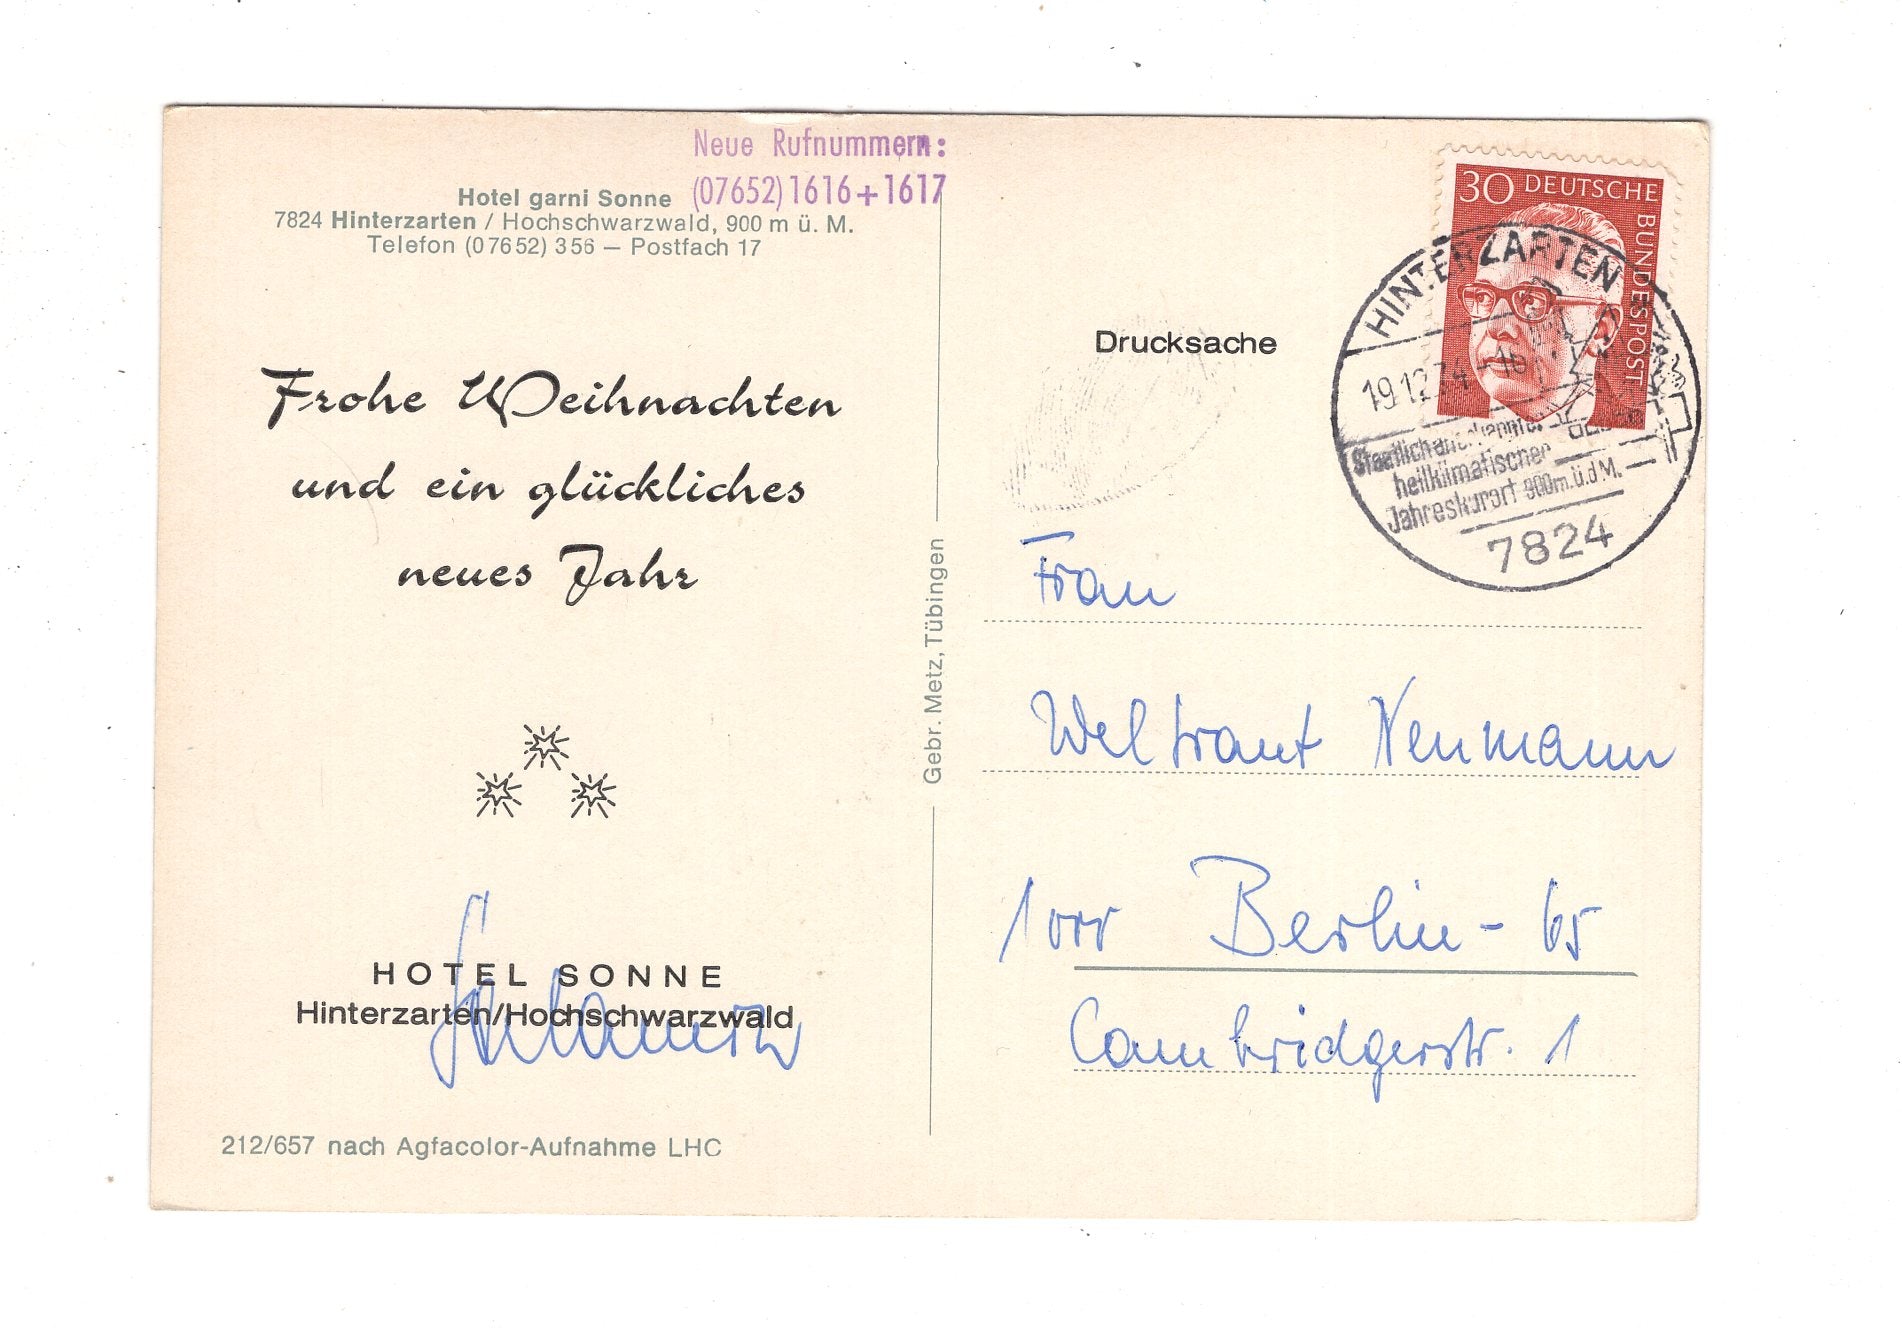 Neue Rufnummern:
(07652) 1616 + 1617
Hotel garni Sonne
7824 Hinterzarten / Hochschwarzwald, 900 m ü. M.
Telefon (07652) 356 — Postfach 17
Frohe Weihnachten
und ein glückliches
neues Jahr
HOTEL SONNE
Hinterzarten/Hochschwarzwald
212/657 nach Agfacolor-Aufnahme LHC
Gebr. Metz, Tübingen
30 DEUTSCHE
BUNDESPOST
HINTERZARTEN
19.12.74-16
Staatlich anerkannter
heilklimatischer
Jahreskurort 900m.ü.d.M.
7824
Drucksache
Frau
Weltraut Neumann
1000 Berlin - 65
Cambridgerstr. 1